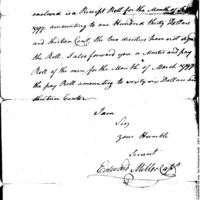 enclosed is a Receipt Roll for the Month of
1797. amounting to one Hundred thirty Dollars
and thirteen Cents, the two deceased have not
the Roll. I also forward you a Muster and pay
Roll of the men for the Month of March 1797
the pay Roll amounting to sixty six Dollars and
thirteen Cents
I am
Sir
your Humble
Servant
Edward Miller Capt